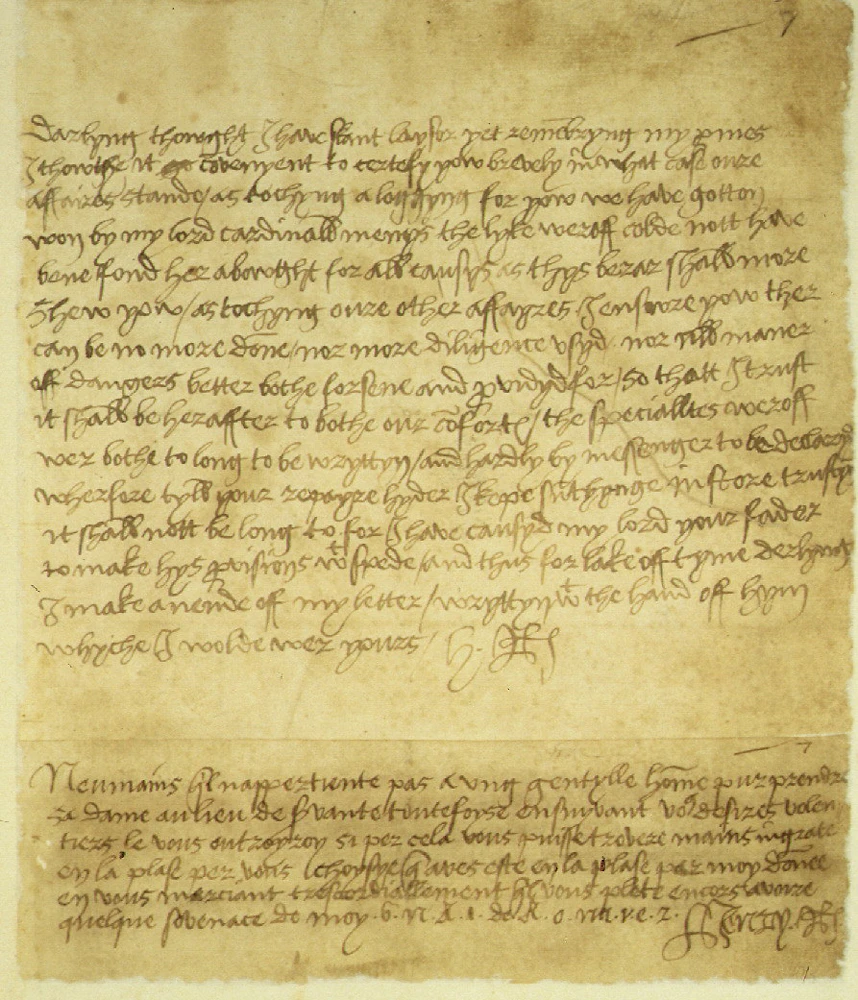 7
Darlyng thowght I have skant laysor yet remēbryng my pmes
I thowthe it go cōvenyent to certefy yow brevely in what case oure
affaires stande / as tochyng a loggyng for yow we have gotton
won by my lord cardinall menys the lyke weroff colde nott have
bene fond her abowtght for all causys as thys berar shall more
shew yow / as tochyng oure other affayres I ensure yow ther
can be no more done / nor more diligence usyd nor all maner
off dangers better bothe forsene and pvidyd for / so thatt I trust
it shall be heraffter to bothe our cōforte / the specialltes weroff
wer bothe to long to be wryttyn / and hardly by messenger to be declaryd
wherfore tyll your repayre hyder I kepe su thynge in store trustyng
it shall nott be long to / for I have causyd my lord your fader
to make hys pvisions wt spede / and thus for lake off tyme derlyng
I make a nende off my letter / wryttyn wt the hand off hym
whyche I wolde wer yours / H. R
7
Neumains qil nappertiente pas a ung gentylle hōme pur prendre
sa dame au lieu de svante toutefoyse ensuivant vos desires volen
tiers le vous outroyroy si per cela vous puisse trovere mains ingrate
en la plase per vous choysye q aves este en la plase per moy donée
en vous merciant trescordiallement qil vous plete encors avoire
quelque sovenace de moy . 6. n. A. 1. de A. o. na. v. e. z. Henry R